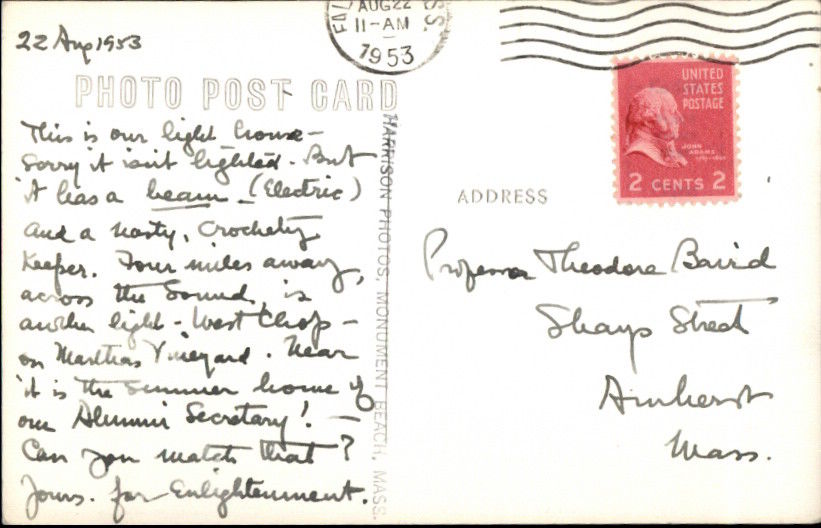 22 Aug 1953
FAL
AUG 22
11-AM
1953
SS.
UNITED
STATES
POSTAGE
JOHN
ADAMS
2 CENTS 2
PHOTO POST CARD
This is our light house -
Sorry it isn't lighted. But
it has a beam - (Electric)
and a nasty, crochety
Keeper. Four miles away,
across the Sound, is
another light - West Chop -
on Marthas Vineyard. Near
it is the summer home of
our Alumni Secretary! -
Can you match that?
Yours. for Enlightenment.
HARRISON PHOTOS, MONUMENT BEACH, MASS.
ADDRESS
Professor Theodore Baird
Shays Street
Amherst
Mass.